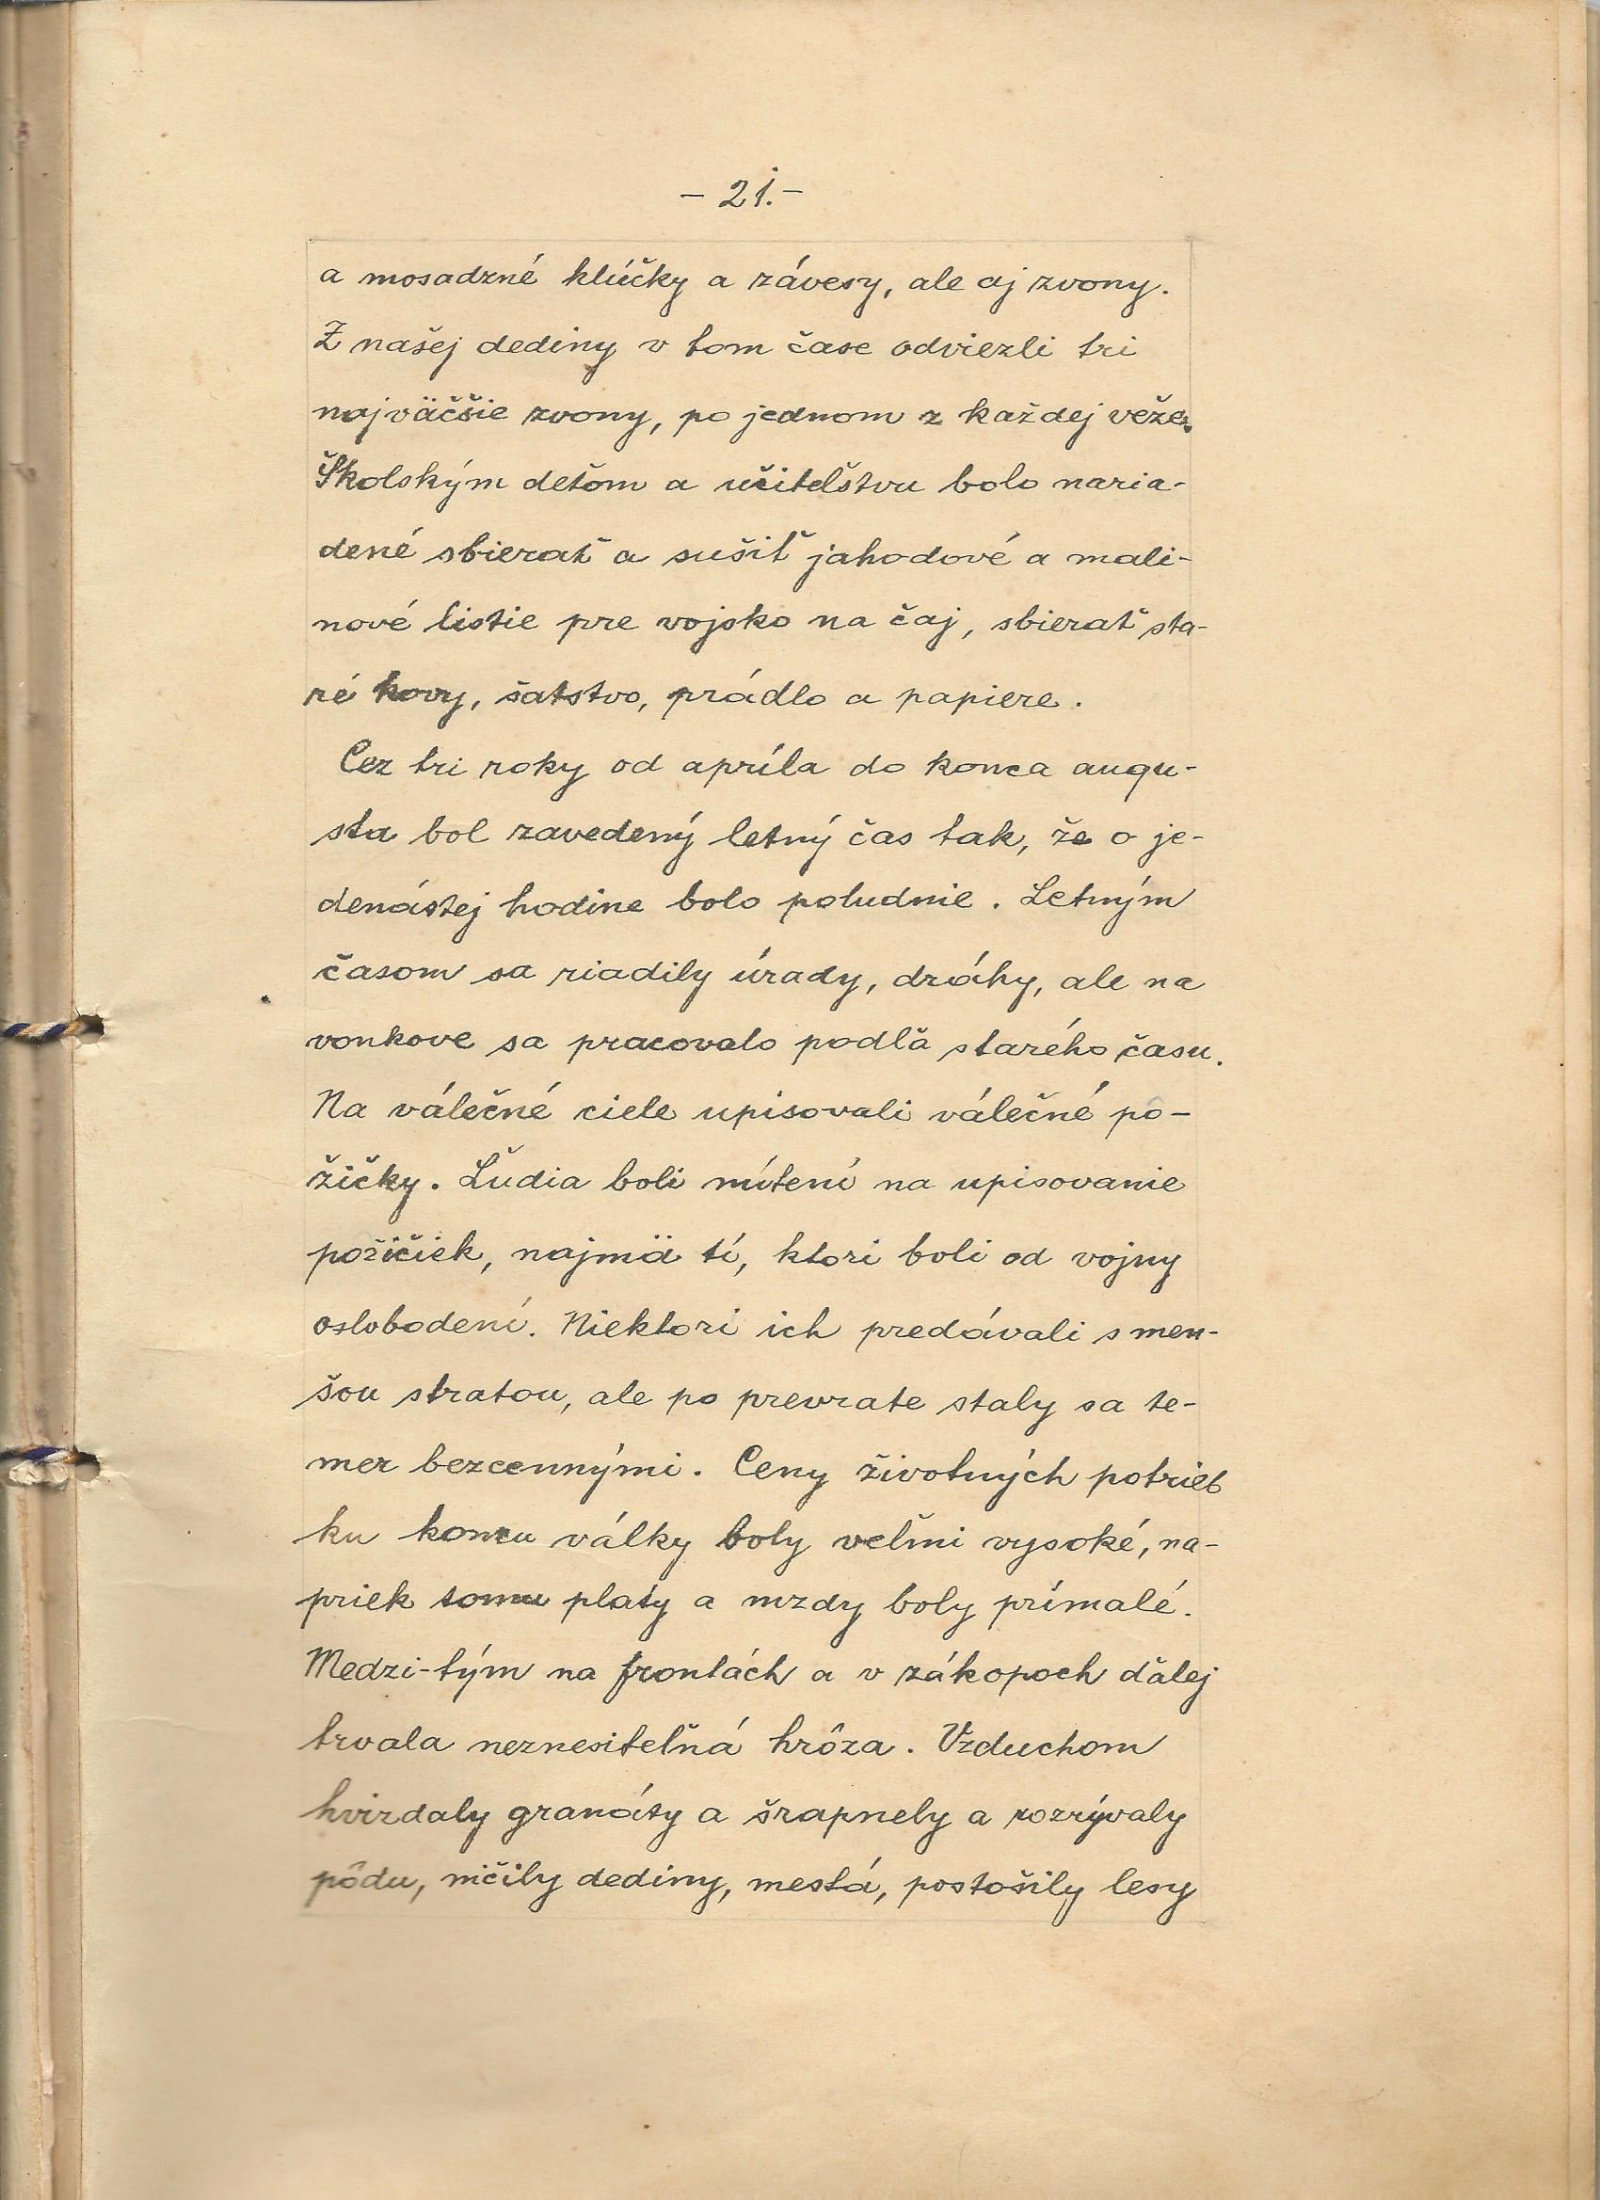 – 21. –
a mosadzné klúčky a závesy, ale aj zvony.
Z našej dediny v tom čase odviezli tri
najväčšie zvony, po jednom z každej veže.
Školským deťom a učiteľstvu bolo naria-
dené sbierať a sušiť jahodové a mali-
nové listie pre vojsko na čaj, sbierať sta-
ré kovy, šatstvo, prádlo a papiere.
Cez tri roky od apríla do konca augu-
sta bol zavedený letný čas tak, že o je-
denástej hodine bolo poludnie. Letným
časom sa riadily úrady, dráhy, ale na
vonkove sa pracovalo podľa starého času.
Na válečné ciele upisovali válečné pô-
žičky. Ľudia boli nútení na upisovanie
požičiek, najmä tí, ktorí boli od vojny
oslobodení. Niektorí ich predávali s men-
šou stratou, ale po prevrate staly sa te-
mer bezcennými. Ceny životných potrieb
ku koncu války boly veľmi vysoké, na-
priek tomu platy a mzdy boly prímalé.
Medzi-tým na frontách a v zákopoch ďalej
trvala neznesiteľná hrôza. Vzduchom
hvizdaly granáty a šrapnely a rozrývaly
pôdu, ničily dediny, mestá, postošily lesy